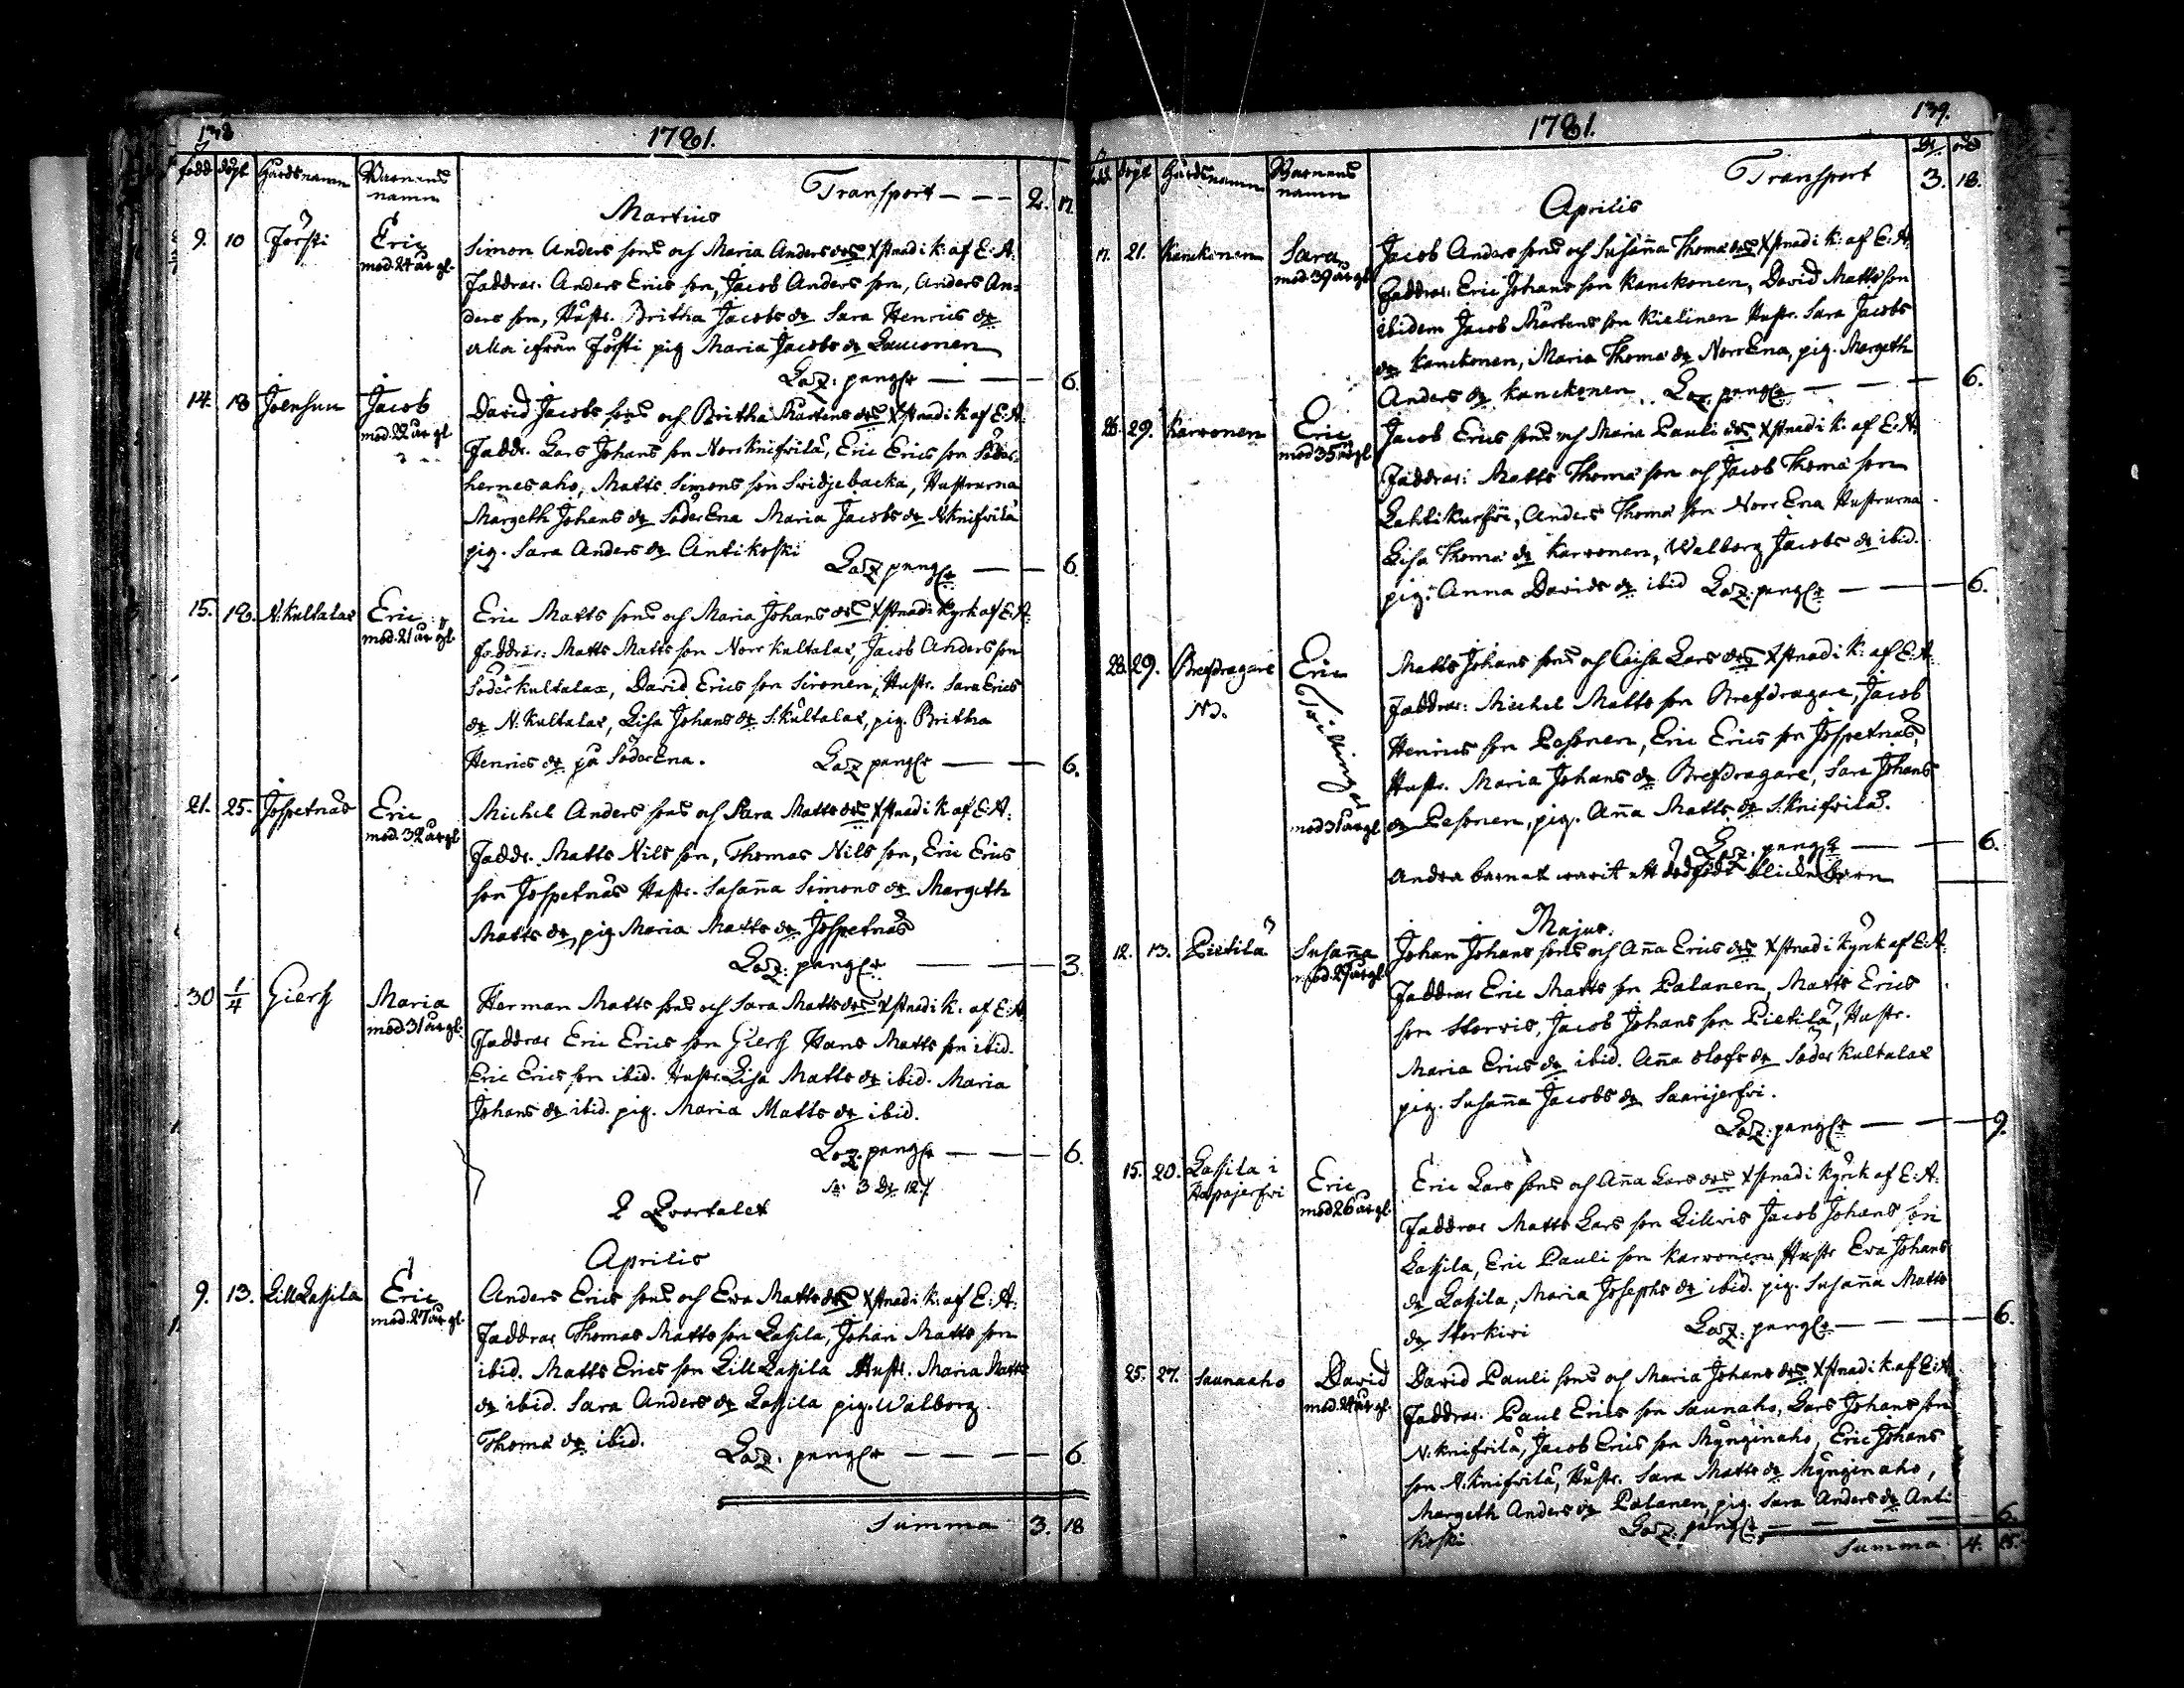 138
1781.
född döpt Gårdsnamn Barnens namn
Transport — — — 2. 17.
Martius
9. 10 Jörsti Eric mod. 24 år gl.
Simon Anders sons och Maria Anders drs Xstnad i k: af E: A:
Faddrar. Anders Erics son, Jacob Anders son, Anders An-
ders son, Hustr. Britha Jacobs dr Sara Henrics dr
alla ifrån Jörsti pig Maria Jacobs dr Lauconen
Laz: peng — — — 6.
14. 18 Joensuu Jacob mod. 22 år gl
David Jacobs sons och Britha Mårtens drs Xstnad i k. af E: A.
Faddr. Lars Johans son Norrknifvilä, Eric Erics son Söder-
hernesaho, Matts Simons son Svidjebacka, Hustrurna
Margeth Johans dr SöderEna Maria Jacobs dr N.knifvilä
pig. Sara Anders dr Antikoski
Laz peng — — 6.
15. 18. N. kultalax Eric mod. 21 år gl.
Eric Matts sons och Maria Johans drs Xstnad i kyrk af E: A:
Faddrar: Matts Matts son Norr kultalax, Jacob Anders son
Söderkultalax, David Erics son Sironen, Hustr. Sara Erics
dr N. kultalax, Lisa Johans dr S: kultalax, pig. Britha
Henrics dr på SöderEna.
Laz peng — — 6.
21. 25. Jospetnäs Eric mod. 32 år gl
Michel Anders sons och Sara Matts drs Xstnad i k af E: A:
Faddr. Matts Nils son, Thomas Nils son, Eric Erics
son Jospetnäs Hustr. Susanna Simons dr Margeth
Matts dr, pig Maria Matts dr Jospetnäs
Laz: peng — — 3.
30 1/4 Giers Maria mod. 31 år gl.
Herman Matts sons och Sara Matts drs Xstnad i k. af E: A.
Faddrar Eric Erics son Giers Hans Matts son ibid.
Eric Erics son ibid. Hustr. Lisa Matts dr ibid. Maria
Johans dr ibid. pig. Maria Matts dr ibid.
Laz. peng — — — 6.
Sr. 3 Dr 12.
2 Qvartalet
Aprilis
9. 13. LillLassila Eric mod. 27 år gl.
Anders Erics sons och Ewa Matts drs Xstnad i k: af E: A:
Faddrar Thomas Matts son Lassila, Johan Matts son
ibid. Matts Erics son LillLassila Hustr. Maria Matts
dr ibid. Sara Anders dr Lassila pig. Walborg
Thoma dr ibid.
Laz. peng — — — — 6
Summa 3. 18
139.
1781.
född döpt Gårdsnamn Barnens namn
Transport 3. 18.
Aprilis
17. 21. Kanckonen Sara mod 39 år gl
Jacob Anders sons och Susanna Thoma drs Xstnad i k: af E: A.
Faddrar: Eric Johans son Kanckonen, David Matts son
ibidem Jacob Mårtens son Kielinen Hustr. Sara Jacobs
dr Kanckonen, Maria Thoma dr NorrEna, pig. Margeth
Anders dr Kanckonen. Laz. peng — — — 6.
26. 29. Karvonen Eric mod 35 år gl
Jacob Erics sons och Maria Pauli drs Xstnad i k. af E: A.
Faddrar: Matts Thoma son och Jacob Thoma son
Lahtikurfvi, Anders Thoma son NorrEna Hustrurna
Lisa Thoma dr Karvonen, Walborg Jacobs dr ibid.
pig. Anna Davids dr ibid Laz: peng — — — 6.
28. 29. Brefdragare No. Eric Tvillingar mod 31 år gl
Matts Johans sons och Caisa Lars drs Xstnad i k: af E: A:
Faddrar: Michel Matts son Brefdragare, Jacob
Henrics son Pesonen, Eric Erics son Jospetnäs,
Hustr. Maria Johans dr Brefdragare, Sara Johans
dr Pesonen, pig. Anna Matts dr S. knifvilä.
Laz. peng — — 6.
Andra barnet warit ett dödfödt barn
Majus.
12. 13. Pietilä Susanna mod 27 år gl
Johan Johans sons och Anna Erics drs Xstnad i kyrk af E: A:
Faddrar Eric Matts son Palanen, Matts Erics
son Storvis, Jacob Johans son Pietilä, Hustr.
Maria Erics dr ibid. Anna Olofs dr Söder kultalax
pig. Susanna Jacobs dr Saarijerfvi.
Laz: peng — — 9.
15. 20. Lassila i Haapajerfvi Eric mod 26 år gl
Eric Lars sons och Anna Lars drs Xstnad i kyrk af E: A:
Faddrar Matts Lars son Lillvis Jacob Johans son
Lassila, Eric Pauli son Karvonen Hustr Ewa Johans
dr Lassila, Maria Josephs dr ibid. pig. Susanna Matts
dr Storkivi Laz: peng — — — 6.
25. 27. Saunaaho David mod. 24 år gl.
David Pauli sons och Maria Johans drs Xstnad i k: af E: A
Faddrar. Paul Erics son Saunaho, Lars Johans son
N. knifvilä, Jacob Erics son Mynginaho, Eric Johans
son N. knifvilä, Hustr. Sara Matts dr Mynginaho,
Margeth Anders dr Palanen, pig. Sara Anders dr Anti
koski Laz: peng — — — 6.
Summa 4. 15.